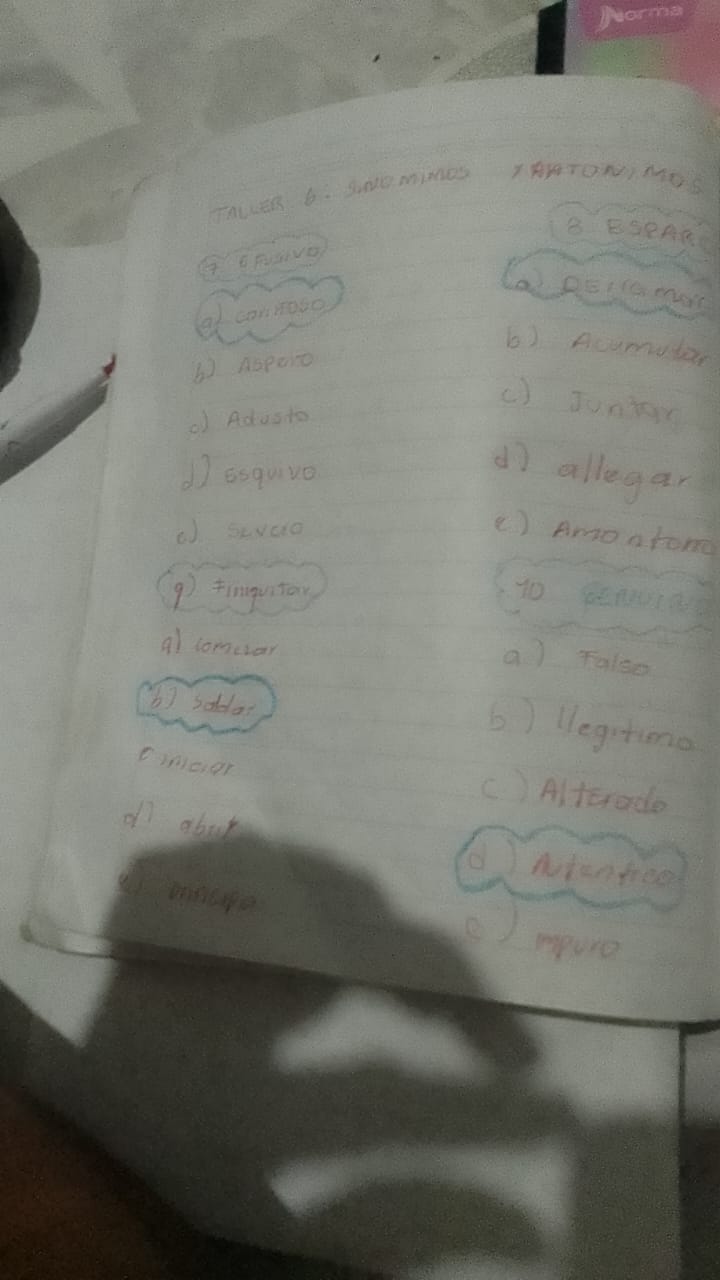 Norma
TALLER 6: SINO MIMOS Y ANTONIMOS
7 EFUSIVO
a) cariñoso
b) Aspero
c) Adusto
d) Esquivo
e) severo
9) Finiquitar
a) comezar
b) Saldar
c iniciar
d) abrir
8 ESPAR
a) Derramar
b) Acumular
c) Juntar
d) allegar
e) Amontona
10
a) Falso
b) Ilegitimo
c) Alterado
d) Autentico
e) mpuro